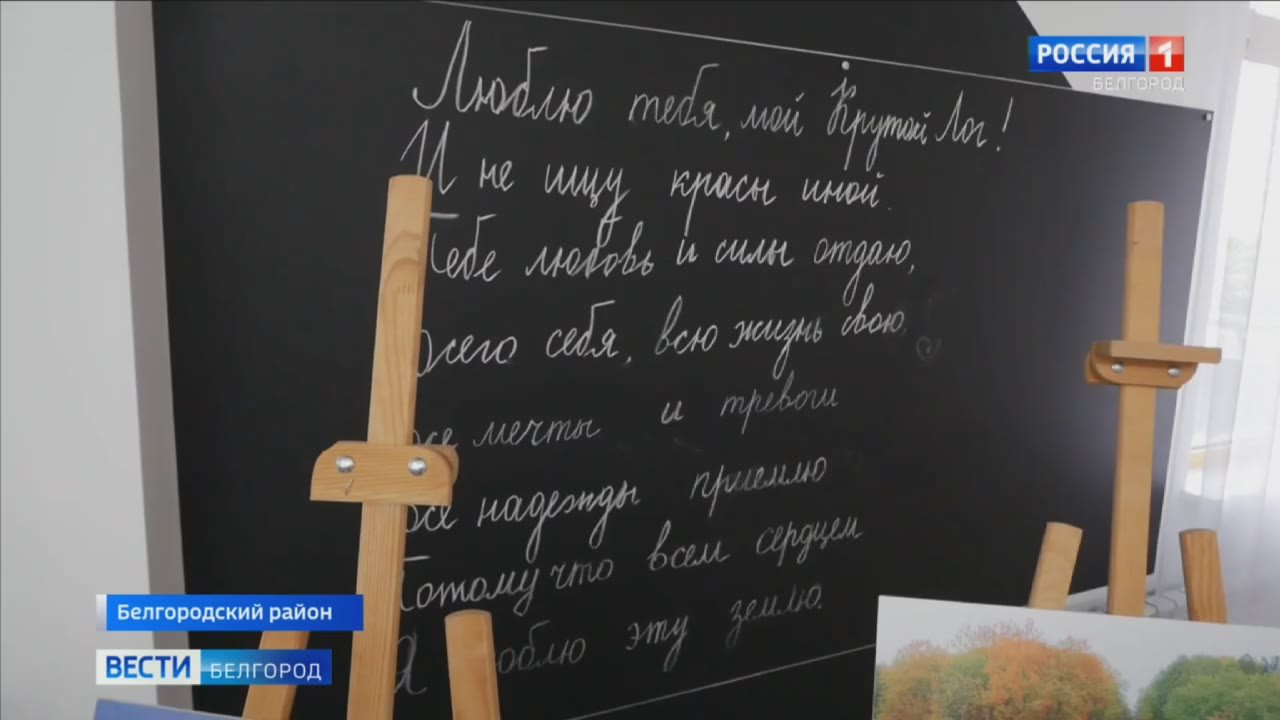 РОССИЯ 1
БЕЛГОРОД
Люблю тебя, мой Крутой Лог!
И не ищу красы иной.
Тебе любовь и силы отдаю,
Всего себя, всю жизнь свою.
Все мечты и тревоги
Все надежды приемлю
Потому что всем сердцем
Я люблю эту землю.
Белгородский район
ВЕСТИ БЕЛГОРОД